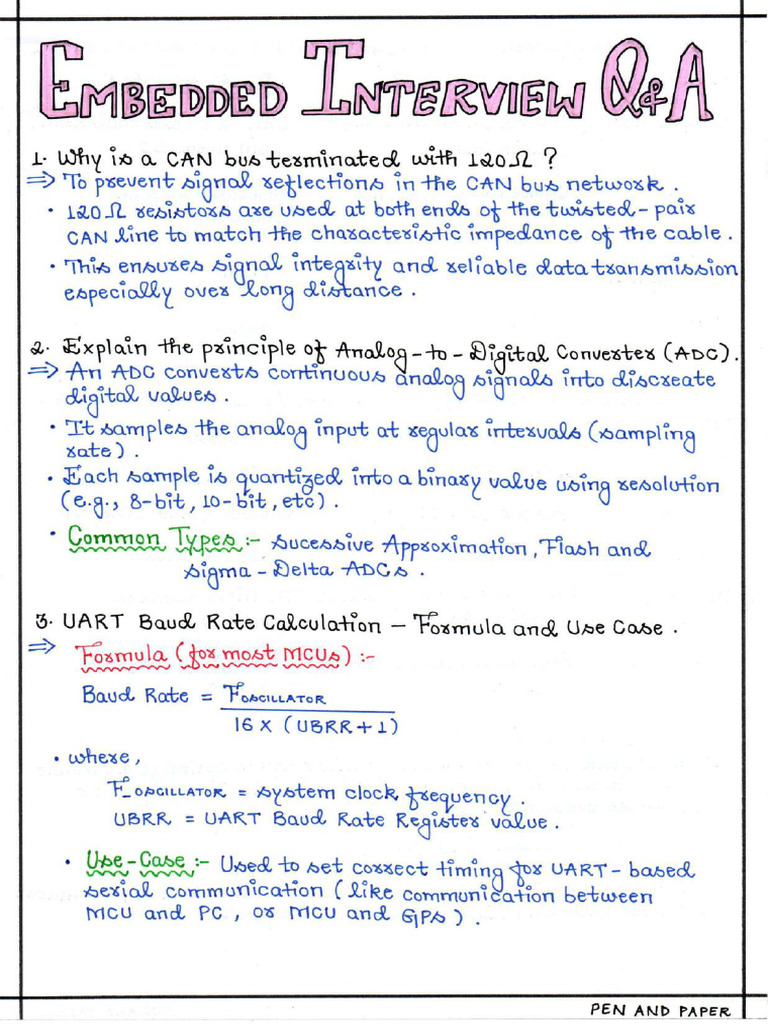 EMBEDDED INTERVIEW Q&A
1. Why is a CAN bus terminated with 120Ω ?
⇒ To prevent signal reflections in the CAN bus network.
• 120Ω resistors are used at both ends of the twisted-pair
CAN line to match the characteristic impedance of the cable.
• This ensures signal integrity and reliable data transmission
especially over long distance.
2. Explain the principle of Analog-to-Digital Converter (ADC).
⇒ An ADC converts continuous analog signals into discreate
digital values.
• It samples the analog input at regular intervals (sampling
rate).
• Each sample is quantized into a binary value using resolution
(e.g., 8-bit, 10-bit, etc).
• Common Types :- sucessive Approximation, Flash and
sigma-Delta ADCs.
3. UART Baud Rate Calculation – Formula and Use Case.
⇒ Formula (for most MCUs) :-
Baud Rate = FOSCILLATOR
16 X (UBRR+1)
• where,
F_OSCILLATOR = system clock frequency.
UBRR = UART Baud Rate Register value.
• Use-Case :- Used to set correct timing for UART-based
serial communication (like communication between
MCU and PC, or MCU and GPS).
PEN AND PAPER